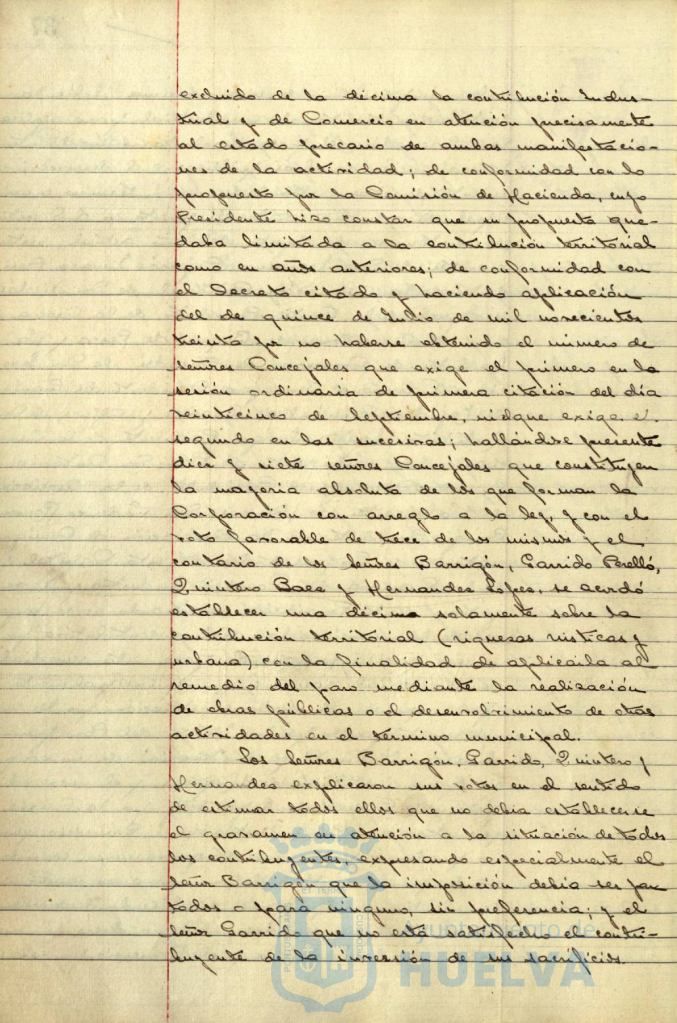 excluido de la décima la contribución Indus-
trial y de Comercio en atención precisamente
al estado precario de ambas manifestacio-
nes de la actividad; de conformidad con lo
propuesto por la Comisión de Hacienda, cuyo
Presidente hizo constar que su propuesta que-
daba limitada a la contribución territorial
como en años anteriores; de conformidad con
el Decreto citado y haciendo aplicación
del de quince de Julio de mil novecientos
treinta por no haberse obtenido el número de
señores Concejales que exige el primero en la
sesión ordinaria de primera citación del día
veinticinco de Septiembre, ni el que exige el
segundo en las sucesivas; hallándose presente
diez y siete señores Concejales que constituyen
la mayoría absoluta de los que forman la
Corporación con arreglo a la ley, y con el
voto favorable de trece de los mismos y el
contrario de los Señores Barrigón, Garrido Perelló,
Quintero Baez y Hernandez Lopez, se acordó
establecer una décima solamente sobre la
contribución territorial (riquezas rústicas y
urbana) con la finalidad de aplicarla al
remedio del paro mediante la realización
de obras públicas o el desenvolvimiento de otras
actividades en el término municipal.
Los Señores Barrigón, Garrido, Quintero y
Hernandez explicaron sus votos en el sentido
de estimar todos ellos que no debía establecerse
el gravamen en atención a la situación de todos
los contribuyentes, expresando especialmente el
señor Barrigón que la imposición debía ser para
todos o para ninguno, sin preferencia; y el
señor Garrido que no está satisfecho el contri-
buyente de la inversión de sus sacrificios.
Ayuntamiento de
HUELVA